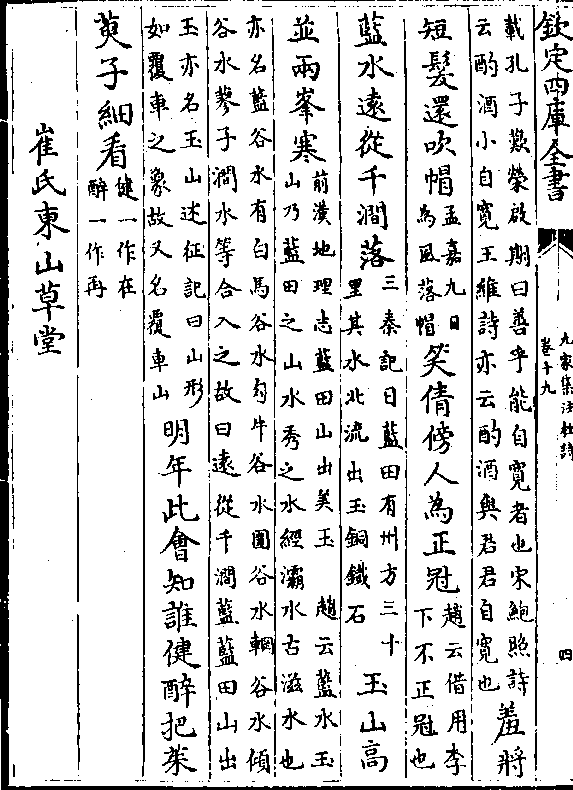 欽定四庫全書
九家集注杜詩
卷十九
四
載孔子歎榮啟期曰善乎能自寛者也宋鮑照詩
云酌酒小自寛王維詩亦云酌酒與君君自寛也
羞將
短髮還吹帽
孟嘉九日
為風落帽
笑倩傍人為正冠
趙云借用李
下不正冠也
藍水遠從千澗落
三秦記曰藍田有州方三十
里其水北流出玉銅鐵石
玉山高
並兩峯寒
前漢地理志藍田山出美玉 趙云藍水玉
山乃藍田之山水秀之水經灞水古滋水也
亦名藍谷水有白馬谷水勾牛谷水圍谷水輞谷水傾
谷水蓼子澗水等合入之故曰遠從千澗藍藍田山出
玉亦名玉山述征記曰山形
如覆車之象故又名覆車山
明年此會知誰健醉把茱
萸子細看
健一作在
醉一作再
崔氏東山草堂